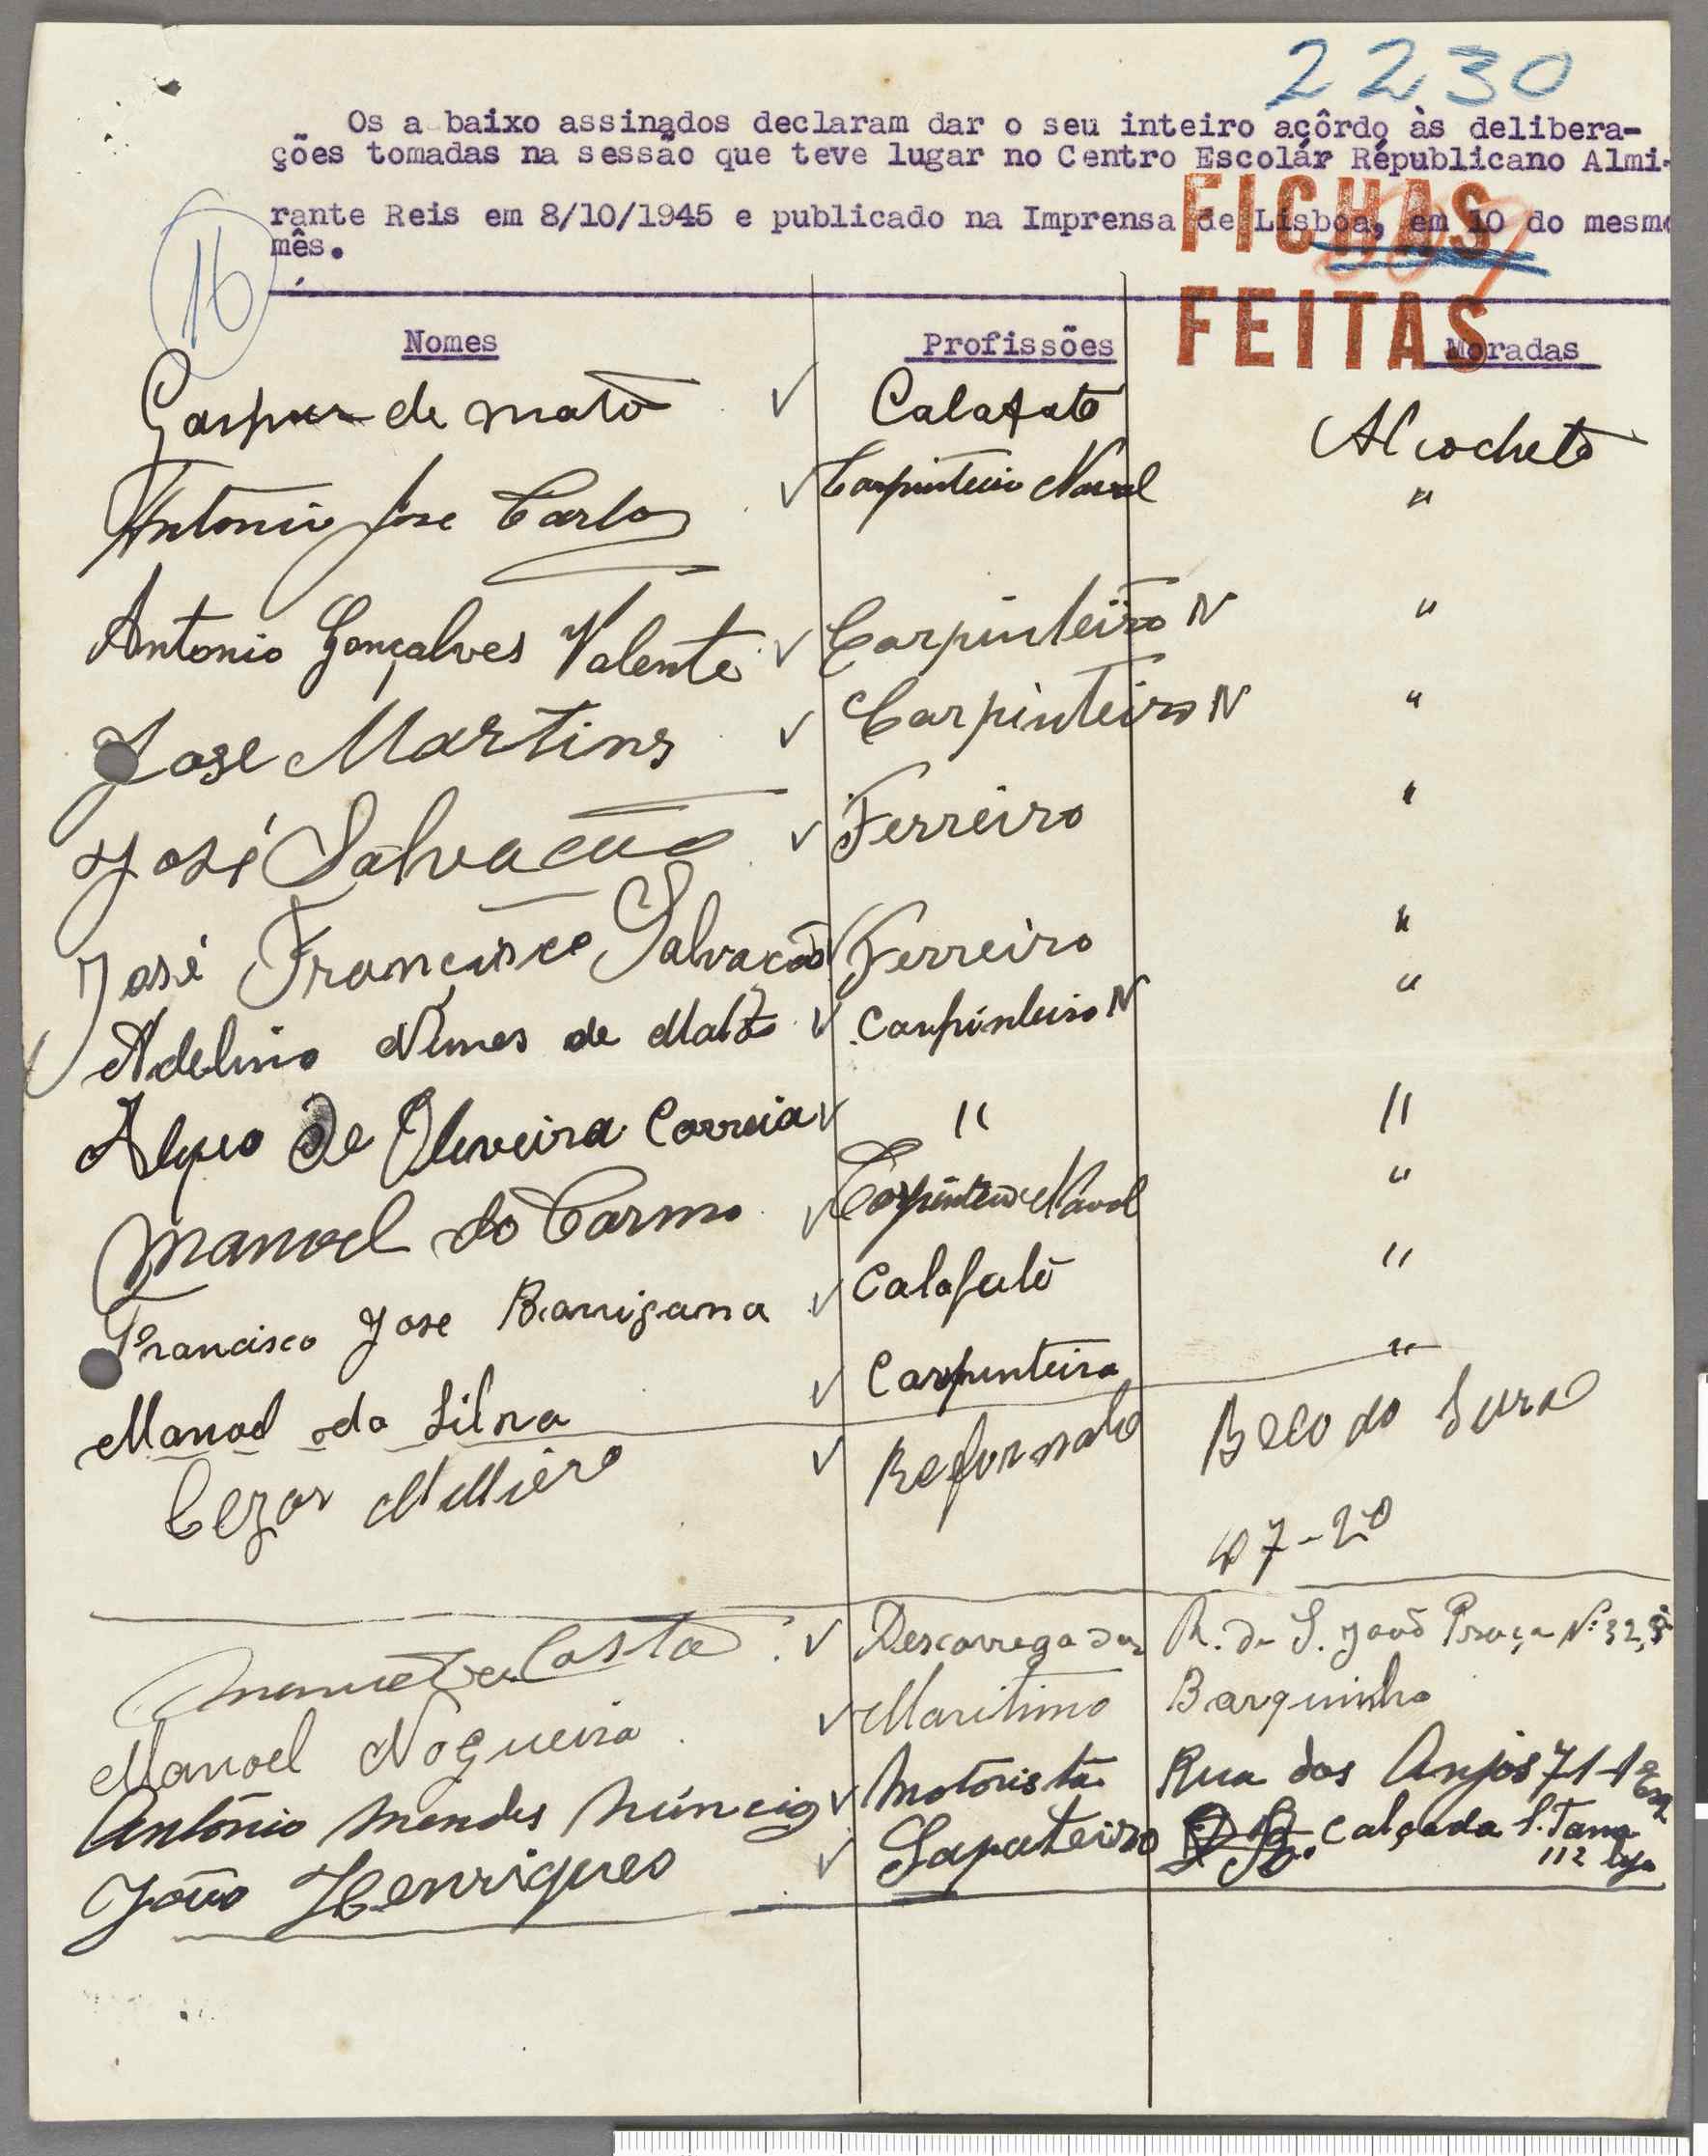 2230
Os a baixo assinados declaram dar o seu inteiro acôrdo às delibera-
ções tomadas na sessão que teve lugar no Centro Escolár Républicano Almi-
rante Reis em 8/10/1945 e publicado na Imprensa de Lisboa, em 10 do mesmo
mês.
FICHAS
FEITAS
16
Nomes Profissões Moradas
Gaspar de mato Calafate Alcochete
Antonio Jose Carlos Carpinteiro Naval "
Antonio Gonçalves Valente Carpinteiro N "
Jose Martins Carpinteiro N "
José Salvação Ferreiro "
José Francisco Salvacão Ferreiro "
Adelino Nunes de Mato Carpinteiro N "
de Oliveira Correia " "
Manoel do Carmo Carpinteiro Naval "
Francisco Jose Barrigana Calafate "
Manoel da Silva Carpinteiro "
Cezar Reformado Beco do
7-2º
Manuel da Costa Descarregador R. de S. João Praça Nº 32,
Manoel Nogueira Maritimo Barquinha
António Mendes Núncio Motorista Rua dos Anjos 71-1º Esq
João Henriques Sapateiro Calçada S. Tana
112 loja